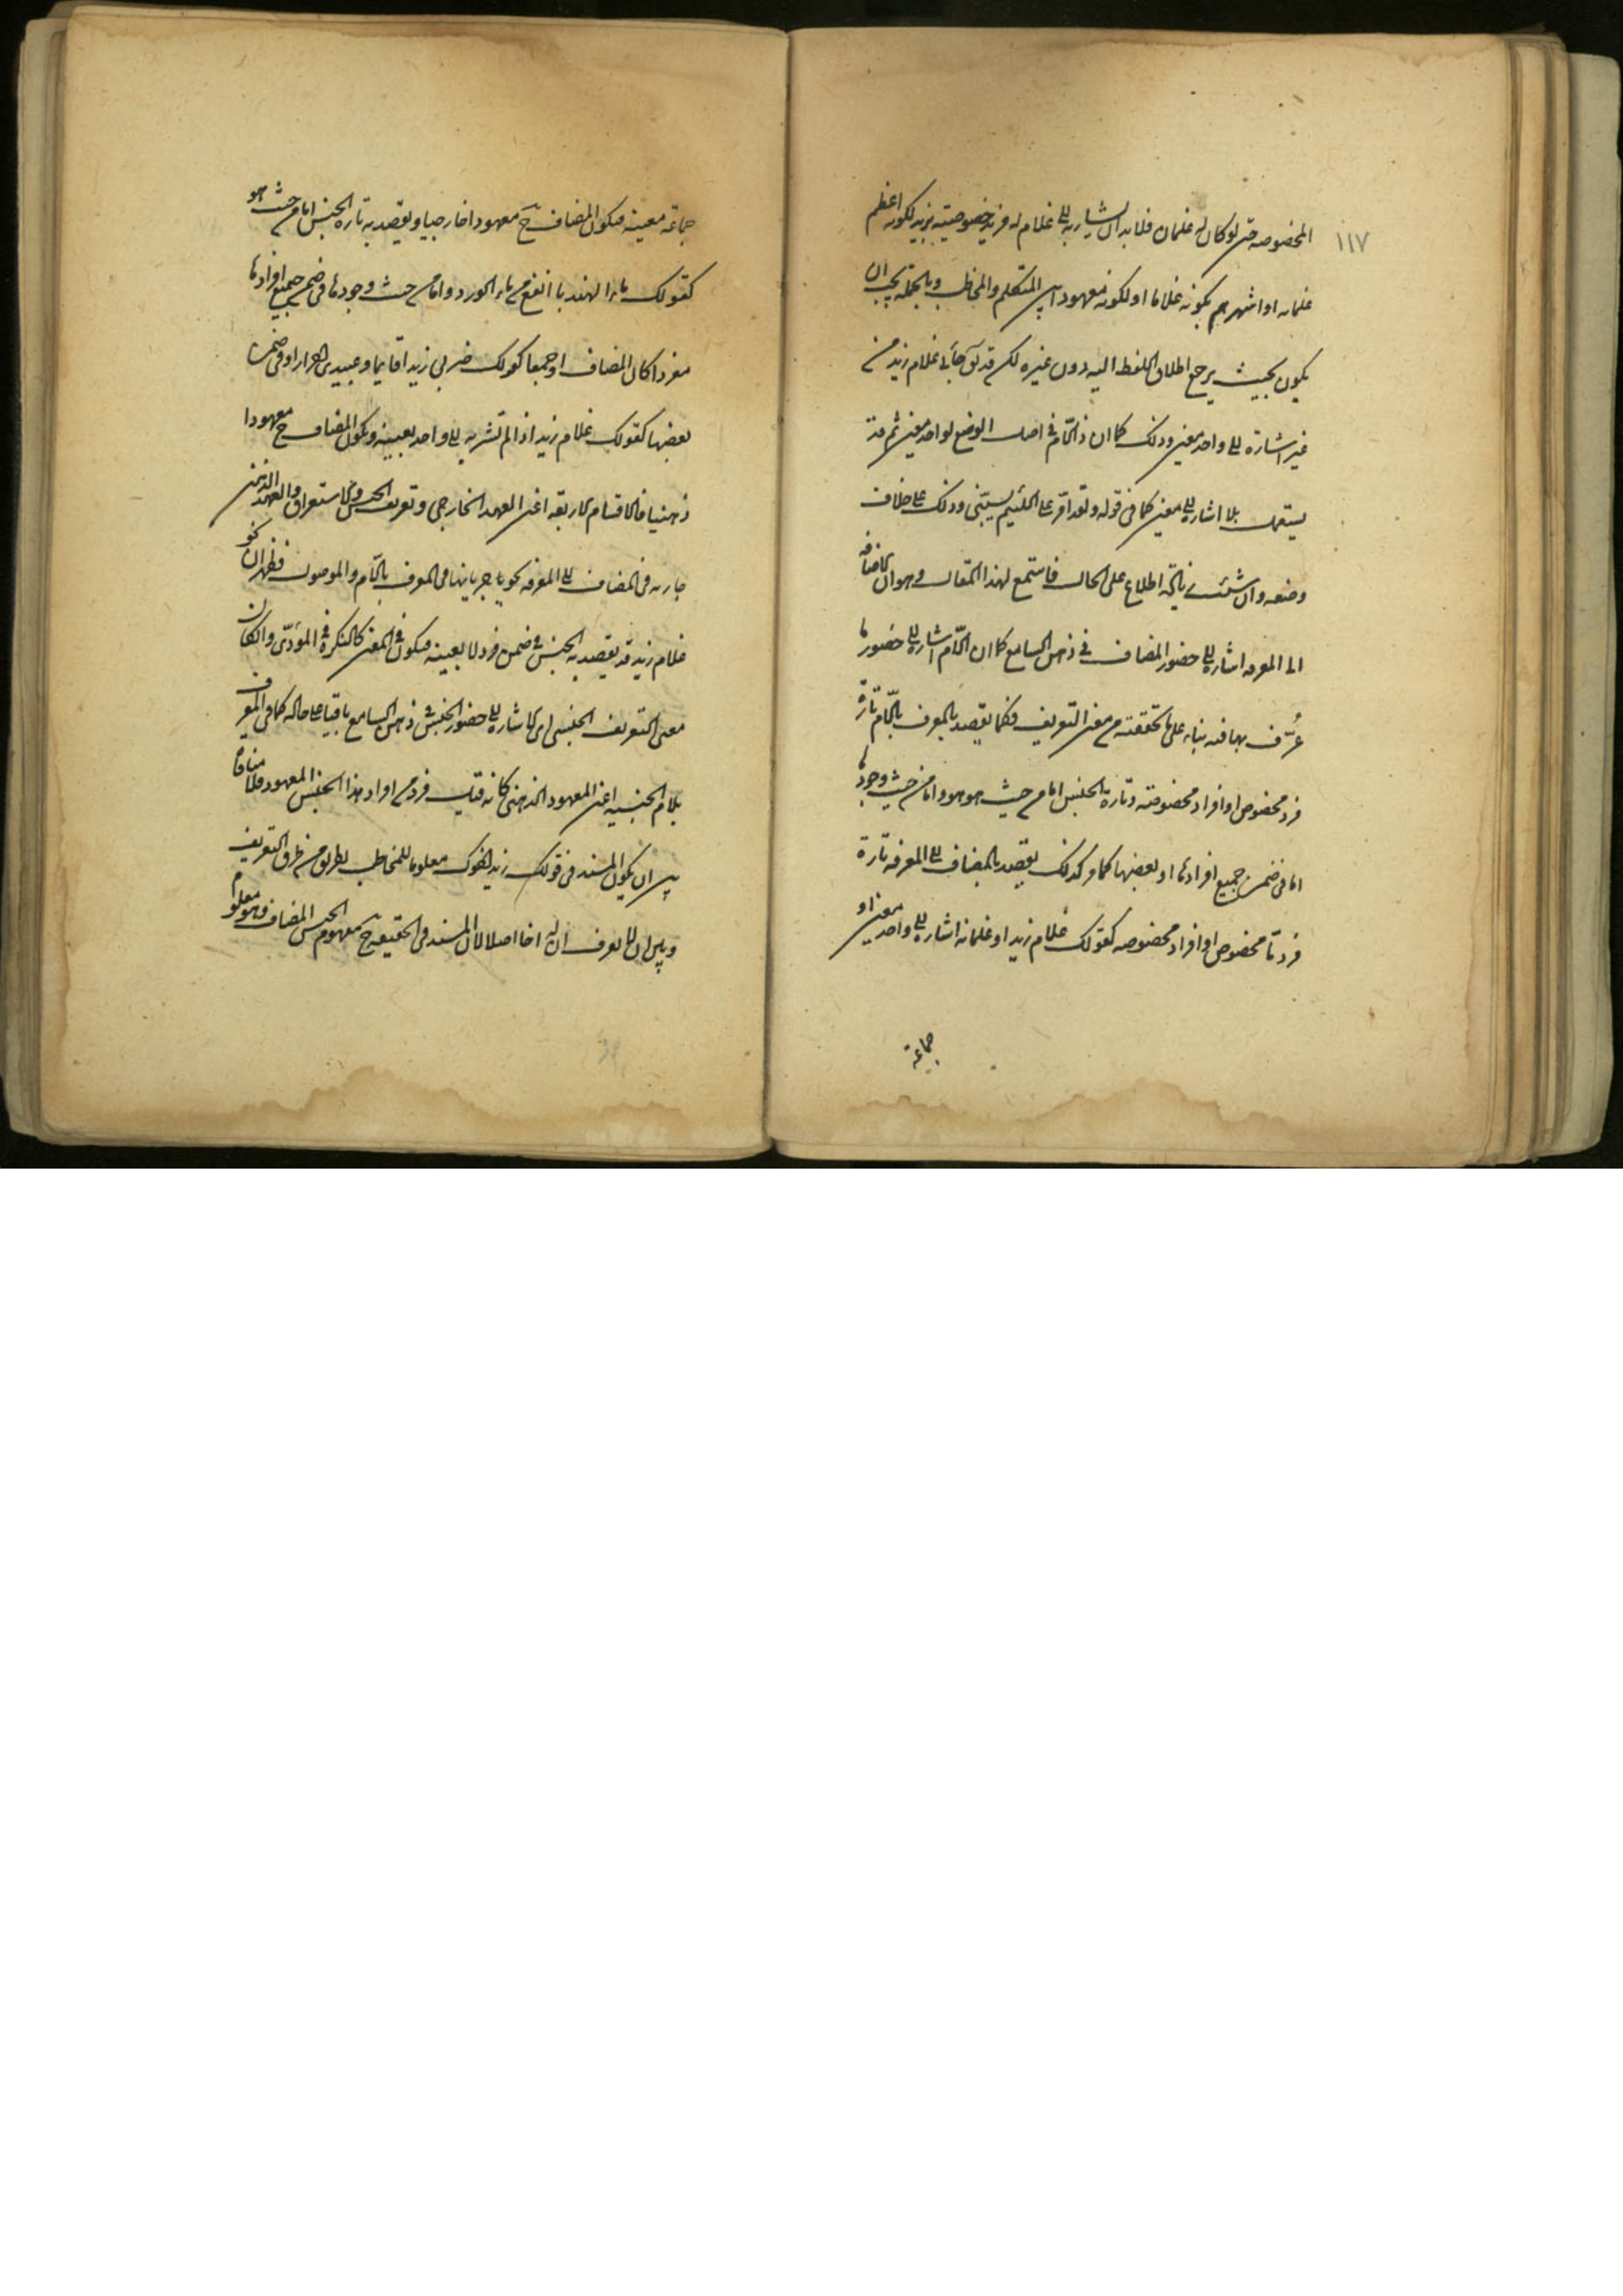 ١١٧
المخصوصة حتى لو كان له غلمان فلا بد ان يشار به الى غلام له مزيد خصوصيته بزيد لكونه اعظم
غلمانه او اشهرهم بكونه غلاما او لكونه معهودا بين المتكلم والمخاطب وبالجملة يجب ان
يكون بحيث يرجع اطلاق اللفظ اليه دون غيره لكن قد يق جاءنى غلام زيد من
غير اشارة الى واحد معين وذلك كما ان ذا اللام فى اصل الوضع لواحد معين ثم قد
يستعمل بلا اشارة الى معين كما فى قوله ولقد امر على اللئيم يسبنى وذلك على خلاف
وضعه وان شئت زيادة اطلاع على الحال فاستمع لهذا المقال وهو ان الاضافة
الى المعرفة اشارة الى حضور المضاف فى ذهن السامع كما ان اللام اشارة الى حضور ما
عُرّف بها فيه بناء على ما تحققته من معنى التعريف فكما يقصد بالمعرف باللام تارة
فرد مخصوص او افراد مخصوصة وتارة الجنس اما من حيث هو هو واما من حيث وجودها
اما فى ضمن جميع افرادها او بعضها كما مر كذلك يقصد بالمضاف الى المعرفة تارة
فرد ما مخصوص او افراد مخصوصة كقولك غلام زيد او غلمانه اشارة الى واحد معين او
جماعة
جماعة معينة فيكون المضاف ح معهودا خارجيا ويقصد به تارة الجنس اما من حيث هو
كقولك ماء الهندبا انفع من ماء الورد واما من حيث وجودها فى ضمن جميع افرادها
مفردا كان المضاف او جمعا كقولك ضربى زيدا قايما وعبيدى احرار او فى ضمن
بعضها كقولك غلام زيد اذا لم تشر به الى واحد بعينه ويكون المضاف ح معهودا
ذهنيا فالاقسام الاربعة اعنى العهد الخارجى وتعريف الجنس والاستغراق والعهد الذهنى
جارية فى المضاف الى المعرفة نحو ما جريانها فى المعرف باللام والموصول فظهر ان نحو
غلام زيد قد يقصد به الجنس فى ضمن فرد لا بعينه فيكون فى المعنى كالنكرة فى المؤدّى وان كان
معنى التعريف الجنسى اى الاشارة الى حضور الجنس فى ذهن السامع باقيا على حاله كما فى المعرف
بلام الجنسية اعنى المعهود الذهنى كانه قيل فرد من افراد هذا الجنس المعهود فلا منافاة
بين ان يكون المسند فى قولك زيد اخوك معلوما للمخاطب بطريق من طرق التعريف
وبين ان لا يعرف ان له اخا اصلا لان المسند فى الحقيقة ح مفهوم الجنس المضاف وهو معلوم